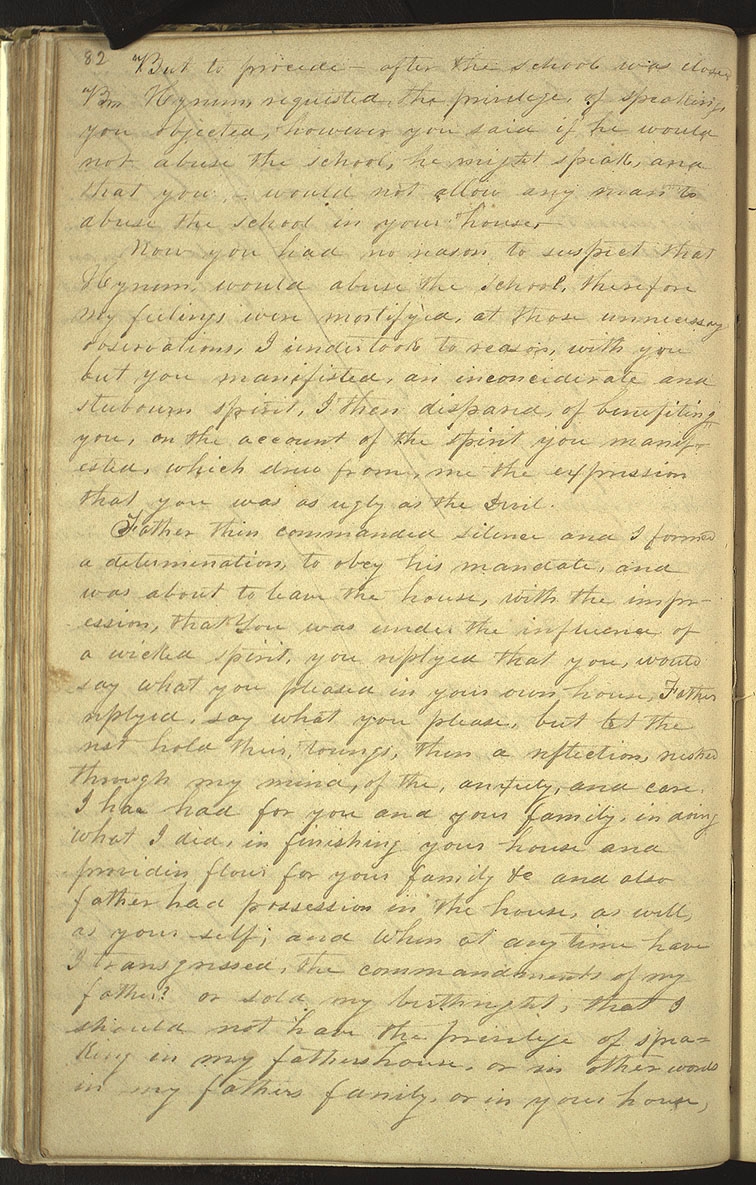 82
But to procede — after the school was closed
Br. Hyrum, requested, the privilege, of speaking,
you objected, however you said if he would
not abuse the school, he might speak, and
that you, — would not allow any man to
abuse the school in your house,—
Now you had no reason to suspect that
Hyrum, would abuse the School, therefore
my feelings were mortifyed, at those unnecessary
observations, I undertook to reason, with you
but you manifisted, an inconciderate and
stubourn spirit, I then dispared, of benefiting
you, on the account of the spirit you manif-
ested, which drew from, me the expression
that you was as ugly as the Devil.
Father then commanded silence and I formed
a determination, to obey his mandate, and
was about to leave the house, with the impr-
ession, that You was under the influence of
a wicked spirit, you replyed that you, would
say what you pleased in your own house, Father
replyed, say what you please, but let the
rest hold their, toungs, then a reflection, rushed
through my mind, of the, anxiety, and care.
I hav had for you and your family, in doing
what I did, in finishing your house and
providin flour for your family &c and also
father had possession in the house, as well,
as your self; and when at any time have
I transgressed, the commandments of my
father? or sold my birthright, that I
should not have the privilege of spea=
king in my fathers house, or in other words
in my fathers family, or in your house,